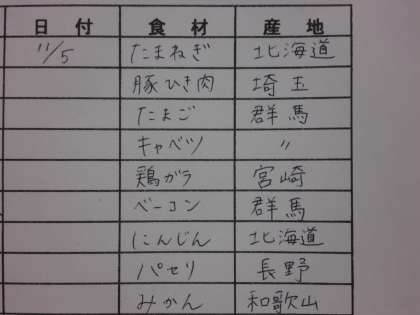 日付 食材 産地
11/5 たまねぎ 北海道
豚ひき肉 埼玉
たまご 群馬
キャベツ 〃
鶏ガラ 宮崎
ベーコン 群馬
にんじん 北海道
パセリ 長野
みかん 和歌山